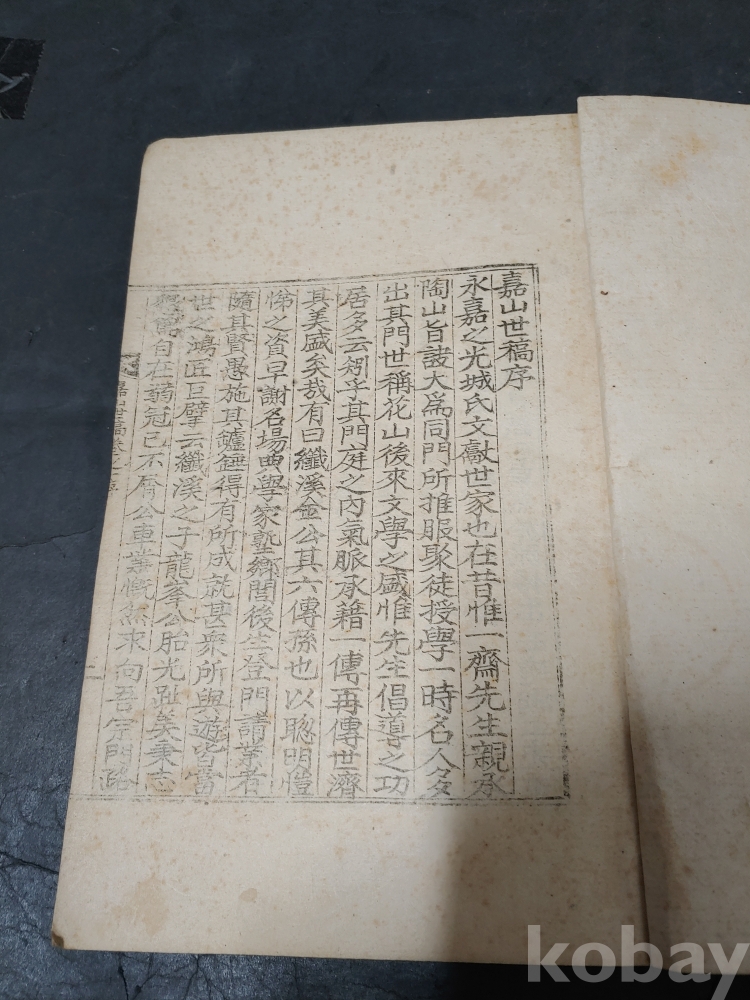 嘉山世稿序
永嘉之光城氏文獻世家也在昔惟一齋先生親承
陶山旨諸大爲同門所推服聚徒授學一時名人多
出其門世稱花山後來文學之盛惟先生倡導之功
居多云矧乎其門庭之内氣脈承藉一傳再傳世濟
其美盛矣哉有曰纖溪金公其六傳孫也以聰明愷
悌之資早謝名場典學家塾鄉閭後生登門請業者
隨其賢愚施其鑪錘得有所成就甚衆所與遊皆當
世之鴻匠巨擘云纖溪之子龍峯公胎光趾美秉志
自在弱冠已不屑公車業慨然求向吾宗門路
嘉山世稿卷之 序
一
kobay